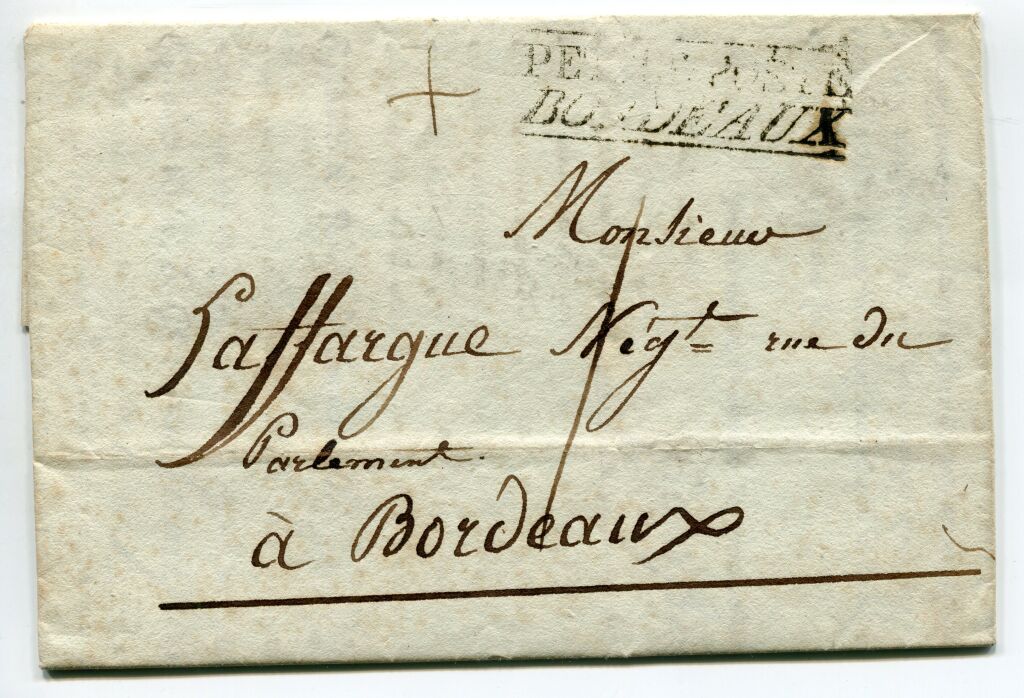 BORDEAUX
Monsieur
Laffargue Négt rue du
Parlement.
à Bordeaux